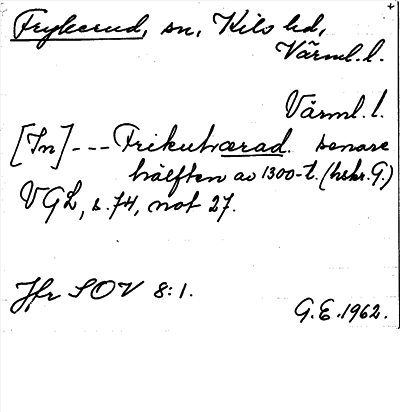 Frykerud, sn, Kils hd,
Värml. l.
Värml. l.
[In] --- Frikutværad. senare
hälften av 1300-t. (hskr. G.)
VGL, s. 74, not 27.
Jfr SOV 8:1.
G.E. 1962.